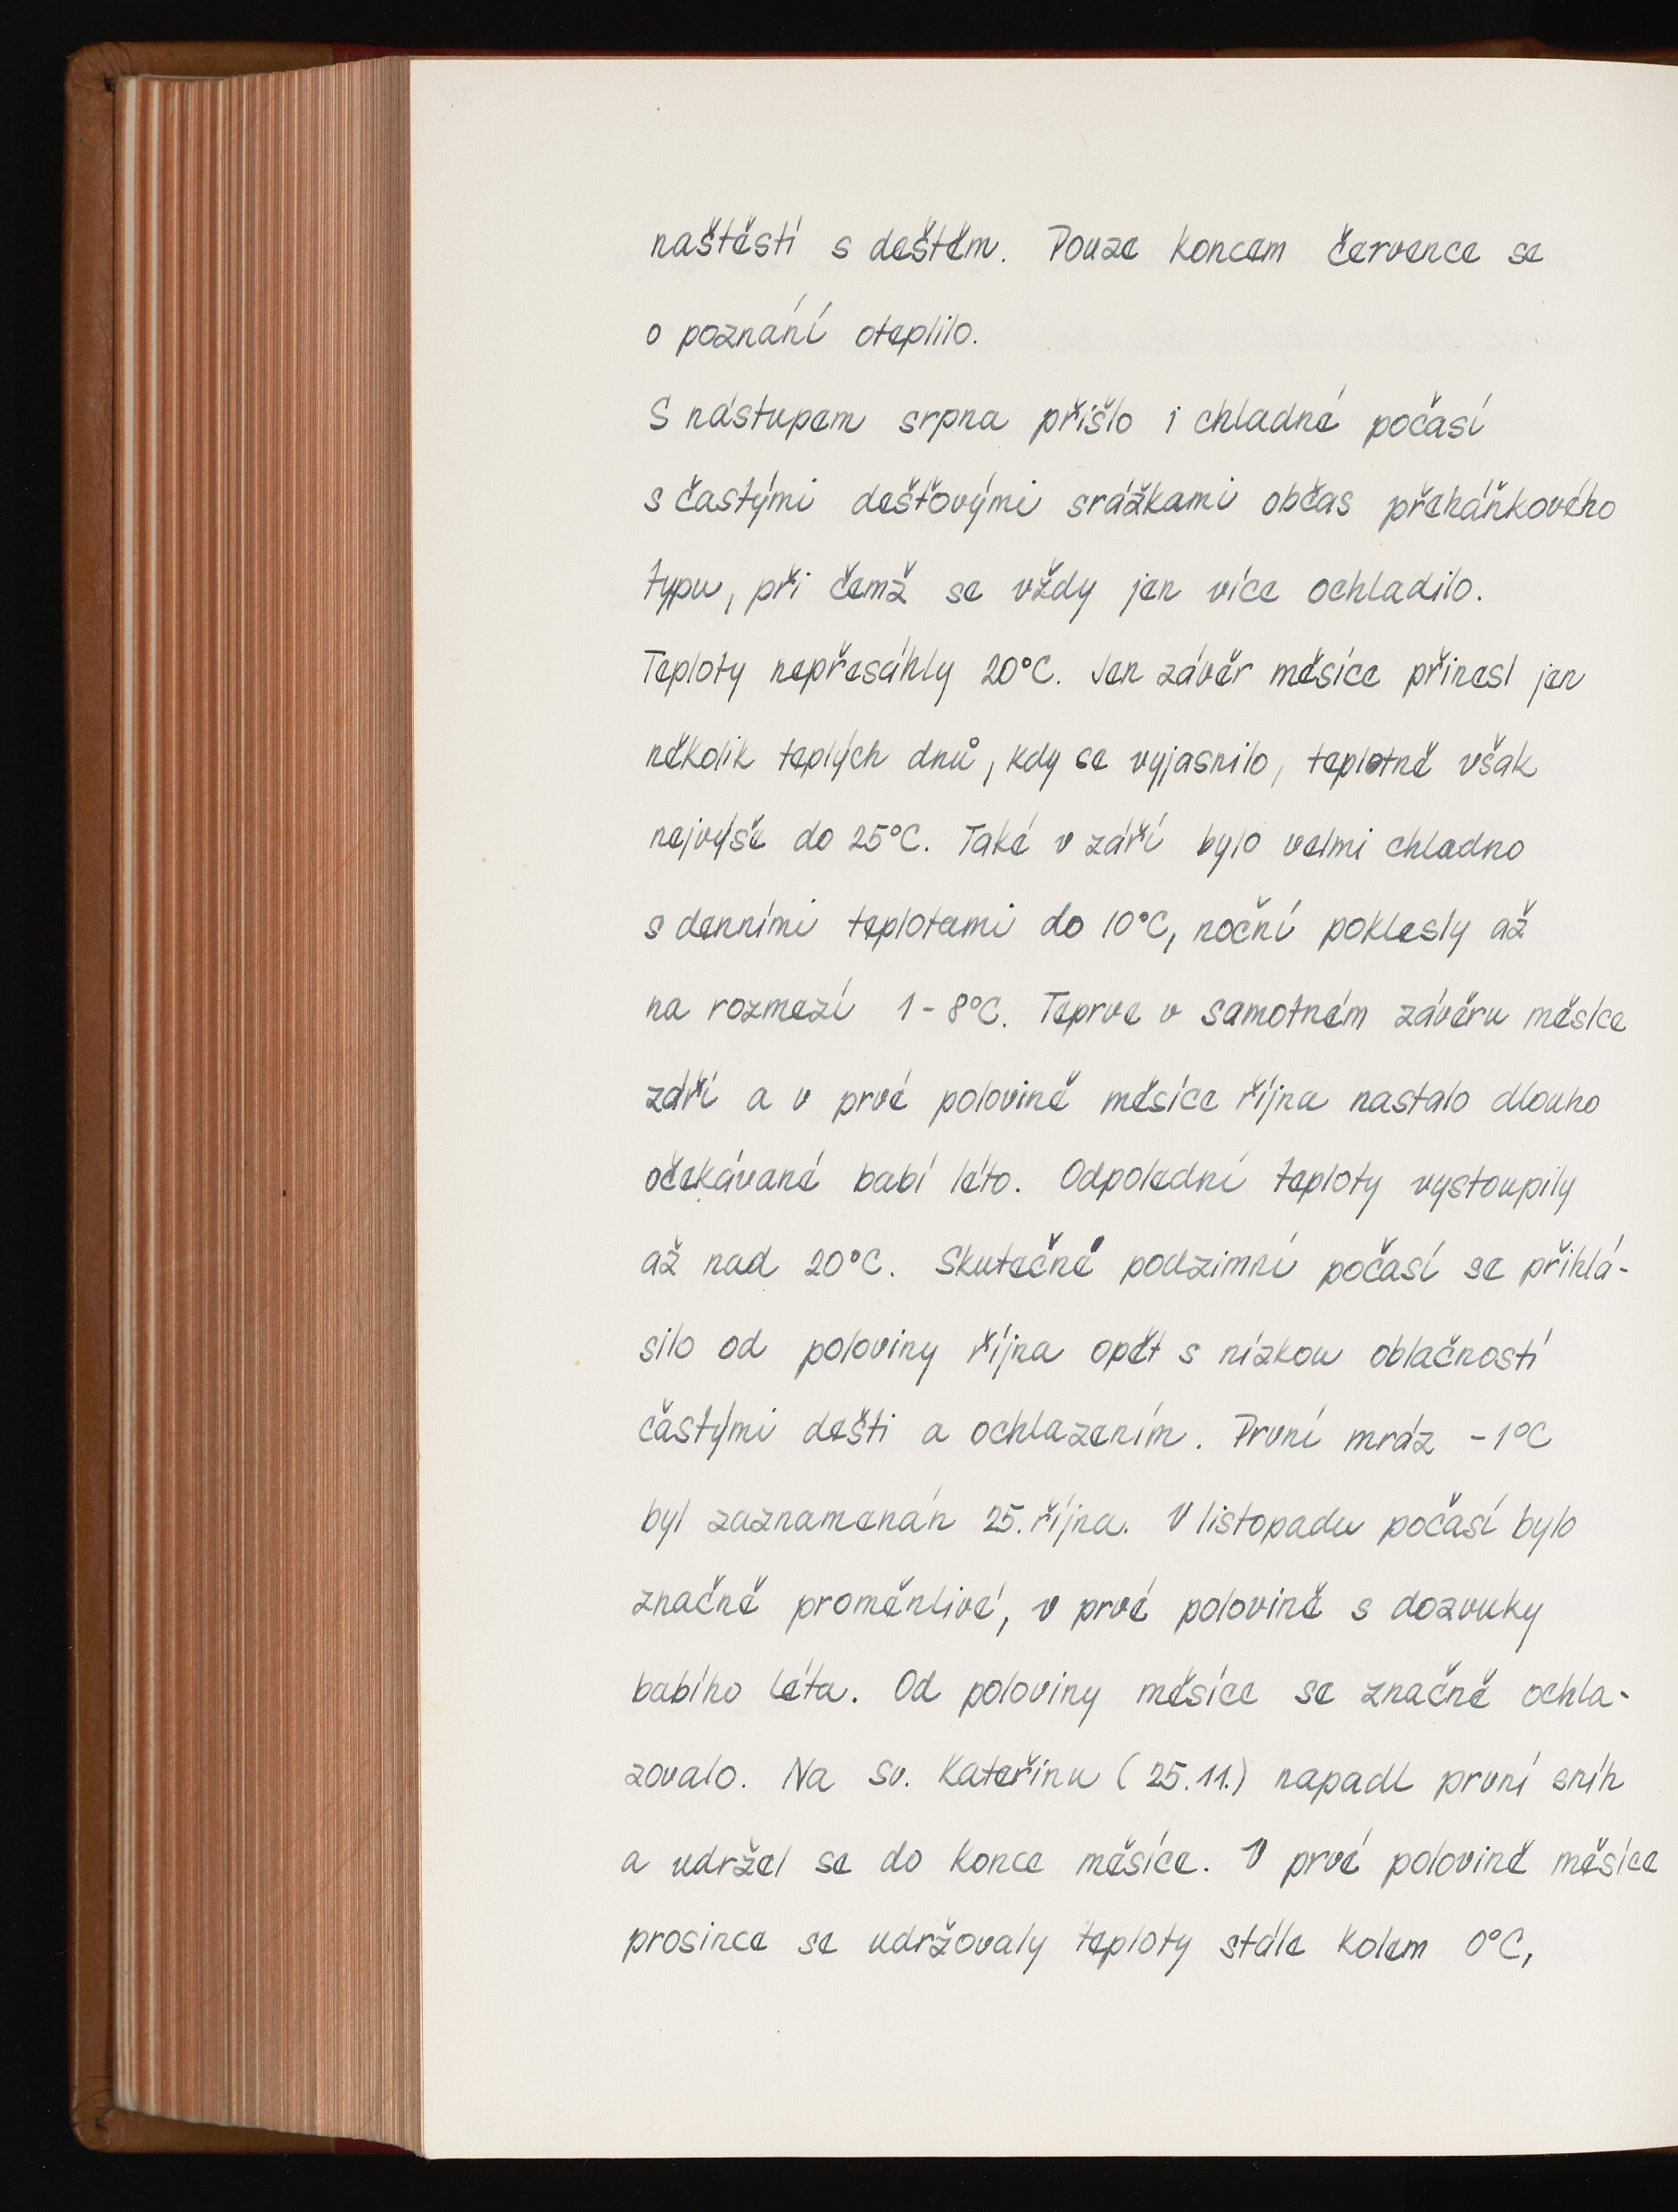 naštěstí s deštěm. Pouze koncem července se
o poznání oteplilo.
S nástupem srpna přišlo i chladné počasí
s častými dešťovými srážkami občas přeháňkového
typu, při čemž se vždy jen více ochladilo.
Teploty nepřesáhly 20°C. Jen závěr měsíce přinesl jen
několik teplých dnů, kdy se vyjasnilo, teplotně však
nejvýše do 25°C. Také v září bylo velmi chladno
s denními teplotami do 10°C, noční poklesly až
na rozmezí 1-8°C. Teprve v samotném závěru měsíce
září a v prvé polovině měsíce října nastalo dlouho
očekávané babí léto. Odpolední teploty vystoupily
až nad 20°C. Skutečné podzimní počasí se přihlá-
silo od poloviny října opět s nízkou oblačností
častými dešti a ochlazením. První mráz -1°C
byl zaznamenán 25. října. V listopadu počasí bylo
značně proměnlivé, v prvé polovině s dozvuky
babího léta. Od poloviny měsíce se značně ochla-
zovalo. Na sv. Kateřinu (25.11.) napadl první sníh
a udržel se do konce měsíce. V prvé polovině měsíce
prosince se udržovaly teploty stále kolem 0°C,